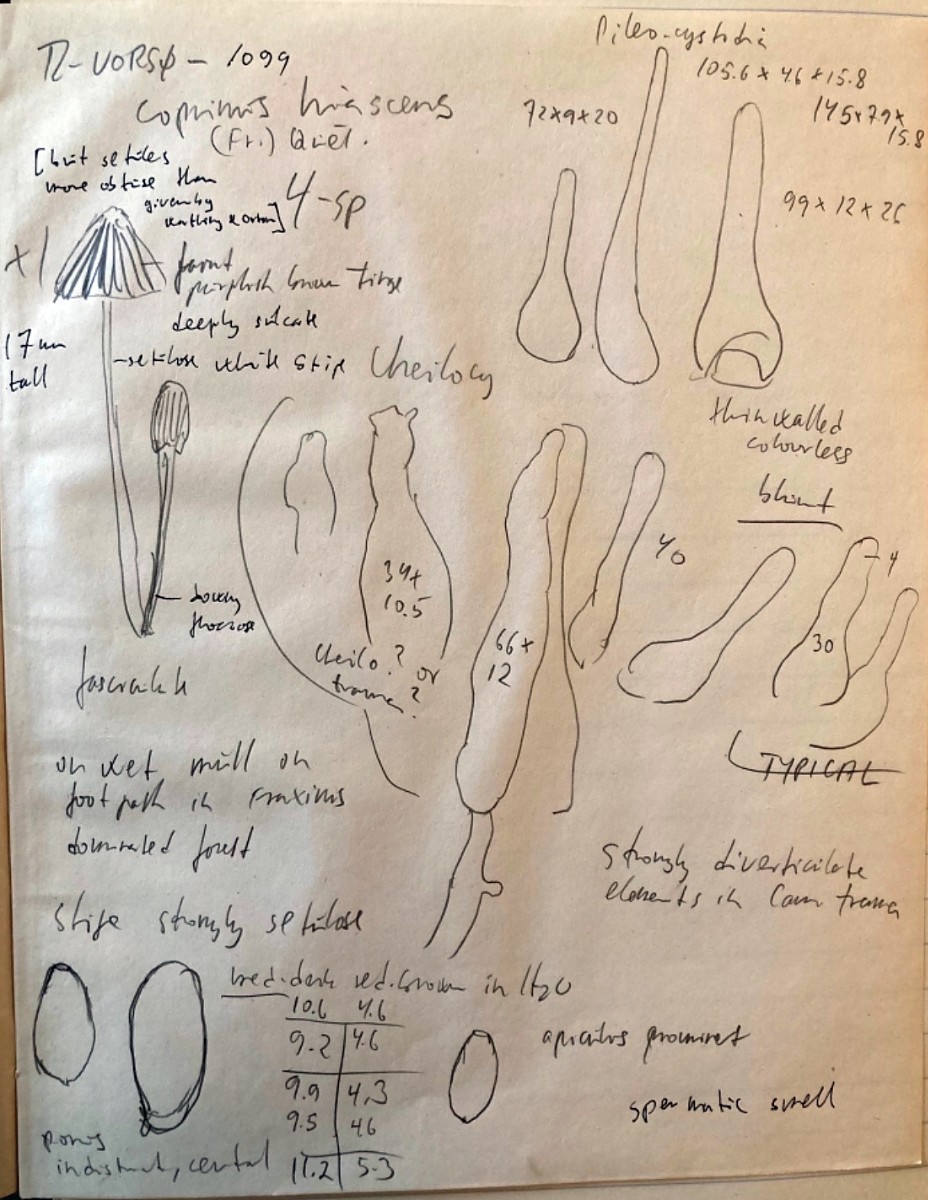 1099
Coprinus hiascens
(Fr.) Quél.
[but setules
more obtuse than
given by
& Orton]
4-sp
x1
faint
purplish brown tinge
deeply sulcate
17 mm
tall
setulose white stipe
downy
floccose
fasciculate
on wet mull on
footpath in Fraxinus
dominated forest
stipe strongly setulose
Pileo-cystidia
105.6 x 4.6 x 15.8
72x9x20
145x7.9x
15.8
99 x 12 x 26
thin walled
colourless
blunt
Cheilocy
34x
10.5
Cheilo? or
trama?
66x
12
40
30
4
TYPICAL
strongly diverticulate
elements in lam trama
med-dark red-brown in H2O
10.6 4.6
9.2 4.6
9.9 4.3
9.5 4.6
11.2 5.3
porus
indistinct, central
apiculus prominent
spermatic smell